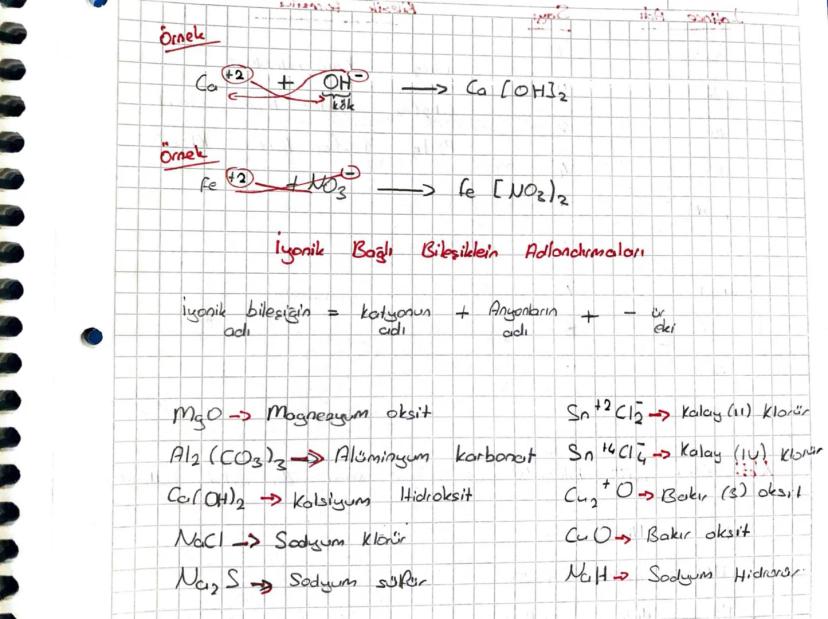 Örnek
Ca +2 + OH - → Ca [OH]2
kök
Örnek
Fe +2 + NO3 - → Fe [NO3)2
İyonik Bağlı Bileşiklein Adlandırmaları
İyonik bileşiğin adı = Katyonun adı + Anyonların adı + - ür eki
MgO → Magnezyum oksit
Al2(CO3)3 → Alüminyum karbonat
Ca(OH)2 → Kalsiyum Hidroksit
NaCl → Sodyum klorür
Na2S → Sodyum sülfür
Sn+2Cl2- → Kalay (II) Klorür
Sn+4Cl4- → Kalay (IV) Klorür
Cu2+O → Bakır (3) oksit
CuO → Bakır oksit
NaH → Sodyum Hidrürür